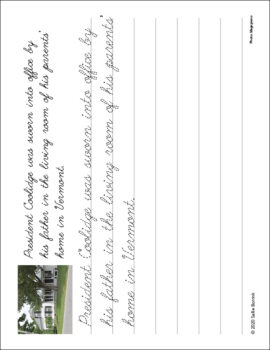 President Coolidge was sworn into office by
his father in the living room of his parents'
home in Vermont.
President Coolidge was sworn into office by
his father in the living room of his parents'
home in Vermont.
© 2020 Sallie Borrink